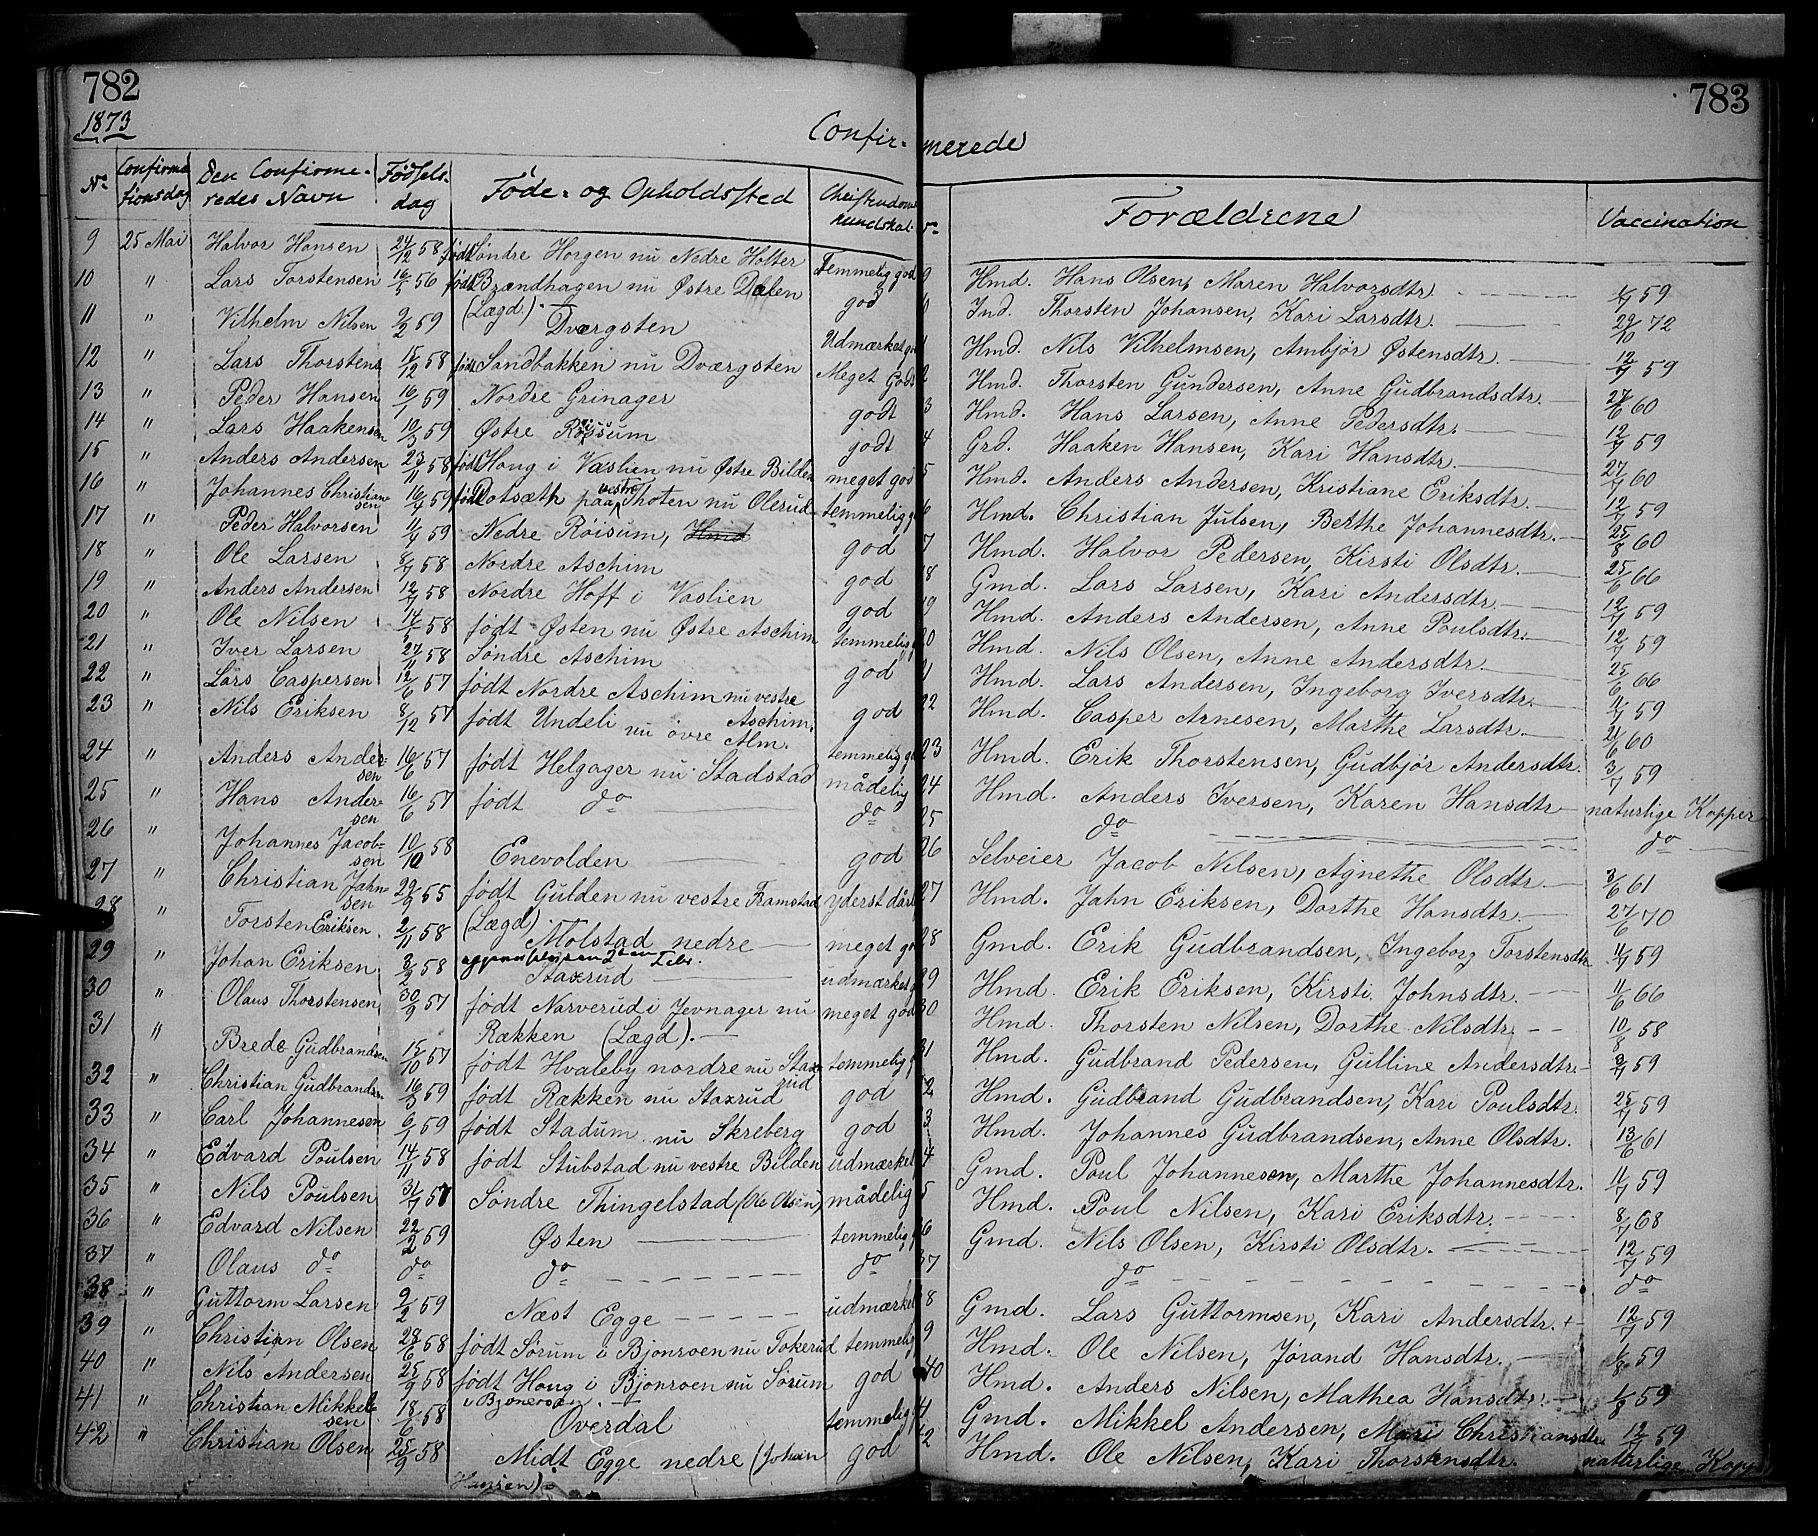 782
783
1873
Confir- merede
No Confirmationsdag Den Confirmeredes Navn Fødselsdag Føde- og Opholdssted Christendomskundskab No Forældrene Vaccination
9 25 Mai Halvor Hansen 24/12 58 født Søndre Horgen nu Nedre Holter Temmelig god 9 Hmd. Hans Olsen, Maren Halvorsdtr. 4/7 59
10 " Lars Torstensen 16/5 56 født Brændhagen nu Østre Dælen (Lægd) god Ind. Thorsten Johansen, Kari Larsdtr. 29/10 72
11 " Vilhelm Nilsen 2/2 59 Dvergsten Udmærket Hmd. Nils Vilhelmsen, Ambjør Østensdtr. 12/7 59
12 " Lars Thorstens 15/12 58 født Sandbakken nu Dværgsten Meget Godt 2 Hmd. Thorsten Gundersen, Anne Gudbrandsdtr. 60
13 " Peder Hansen 16/1 59 Nordre Grinager godt 3 Hmd. Hans Larsen, Anne Pedersdtr. 12/7 59
14 " Lars Haakensen 10/3 59 Østre Røisum godt 4 Grd. Haaken Hansen, Kari Hansdtr. 27/7 60
15 " Anders Andersen 23/11 58 født Houg i Væslien nu Østre Bilden meget god 5 Hmd. Anders Andersen, Kristiane Eriksdtr. 12/7 59
16 " Johannes Christiansen 16/4 59 født Dotsæth paa vestre Thoten nu Olerud temmelig 6 Hmd. Christian Julsen, Berthe Johannesdtr. 25/8 60
17 " Peder Halvorsen 4/4 59 Nedre Røisum, Hmd god 7 Hmd. Halvor Pedersen, Kirsti Olsdtr. 25/6 66
18 " Ole Larsen 8/1 58 Nordre Aschim god 18 Gmd. Lars Larsen, Kari Andersdtr. 12/7 59
19 " Anders Andersen 12/7 58 Nordre Hoff i Væslien god 19 Hmd. Anders Andersen, Anne Poulsdtr. 12/7 59
20 " Ole Nilsen 14/5 58 født Østen nu Østre Aschim temmelig 20 Hmd. Nils Olsen, Anne Andersdtr. 25/6 66
21 " Iver Larsen 27/11 58 Søndre Aschim god Hmd. Lars Andersen, Ingeborg Iversdtr. 4/7 59
22 " Lars Caspersen 12/6 57 født Nordre Aschim nu vestre Aschim god 22 Hmd. Casper Arnesen, Marthe Larsdtr. 21/6 60
23 " Nils Eriksen 8/12 57 født Undeli nu øvre Alm. temmelig 23 Hmd. Erik Thorstensen, Gudbjør Andersdtr. 3/7 59
24 " Anders Andersen 16/6 57 født Helgager nu Stadstad mådelig 24 Hmd. Anders Iversen, Karen Hansdtr naturlige Kopper
25 " Hans Andersen 16/6 57 født do do 25 do do
26 " Johannes Jacobsen 10/10 58 Enevolden god 26 Selveier Jacob Nilsen, Agnethe Olsdtr. 3/6 61
27 " Christian Jahnsen 29/9 55 født Gulden nu vestre Framstad (Lægd) yderst dårl 27 Hmd. Jahn Eriksen, Dorthe Hansdtr. 27/6 70
28 " Torsten Eriksen. 2/11 58 Molstad nedre meget 28 Gmd. Erik Gudbrandsen, Ingeborg Torstensdtr 4/7 59
29 " Johan Eriksen 3/2 58 Staxrud udmærket 29 Hmd. Erik Eriksen, Kirsti Johnsdtr. 4/6 66
30 " Olaus Thorstensen 30/9 57 født Narverud i Jevnager nu Rækken (Lægd). meget god 30 Hmd. Thorsten Nilsen, Dorthe Nilsdtr. 10/8 58
31 " Brede Gudbrandsen 15/10 57 født Hvaleby nordre nu Staxrud temmelig 31 Hmd. Gudbrand Pedersen, Gulline Andersdtr. 59
32 " Christian Gudbrandsen 16/3 59 født Rækken nu Staxrud god 2 Hmd. Gudbrand Gudbrandsen, Kari Poulsdtr. 25/7 59
33 " Carl Johannesen 6/1 59 født Stadum nu Skreberg god 3 Hmd. Johannes Gudbrandsen, Anne Olsdtr. 13/6 61
34 " Edvard Poulsen 14/11 58 født Stubstad nu vestre Bilden udmærket 4 Gmd. Poul Johannesen, Marthe Johannesdtr. 4/7 59
35 " Nils Poulsen 31/7 57 Søndre Thingelstad (Ole Olsen) mådelig 5 Hmd. Poul Nilsen, Kari Eriksdtr. 8/7 68
36 " Edvard Nilsen 22/2 59 Østen temmelig 36 Gmd. Nils Olsen, Kirsti Olsdtr. 12/7 59
37 " Olaus do do do do 37 do do
38 " Guttorm Larsen 2/2 59 Næst Egge udmærket 8 Gmd. Lars Guttormsen, Kari Andersdtr. 12/7 59
39 " Christian Olsen 28/6 58 født Sørum i Bjonroen nu Tokerud temmelig 9 Hmd. Ole Nilsen, Jørand Hansdtr. 1/8 59
40 " Nils Andersen 25/9 58 født Houg i Bjonroen nu Sørum i Bjoneroen god 40 Hmd. Anders Nilsen, Mathea Hansdtr. 1/8 59
41 " Christian Mikkelsen 18/6 58 Overdal temmelig Gmd. Mikkel Andersen, Mari Christiansdtr 12/7 59
42 " Christian Olsen 25/9 58 Midt Egge nedre (Johan Hansen) god 42 Hmd. Ole Nilsen, Kari Thorstensdtr. naturlige Kopp